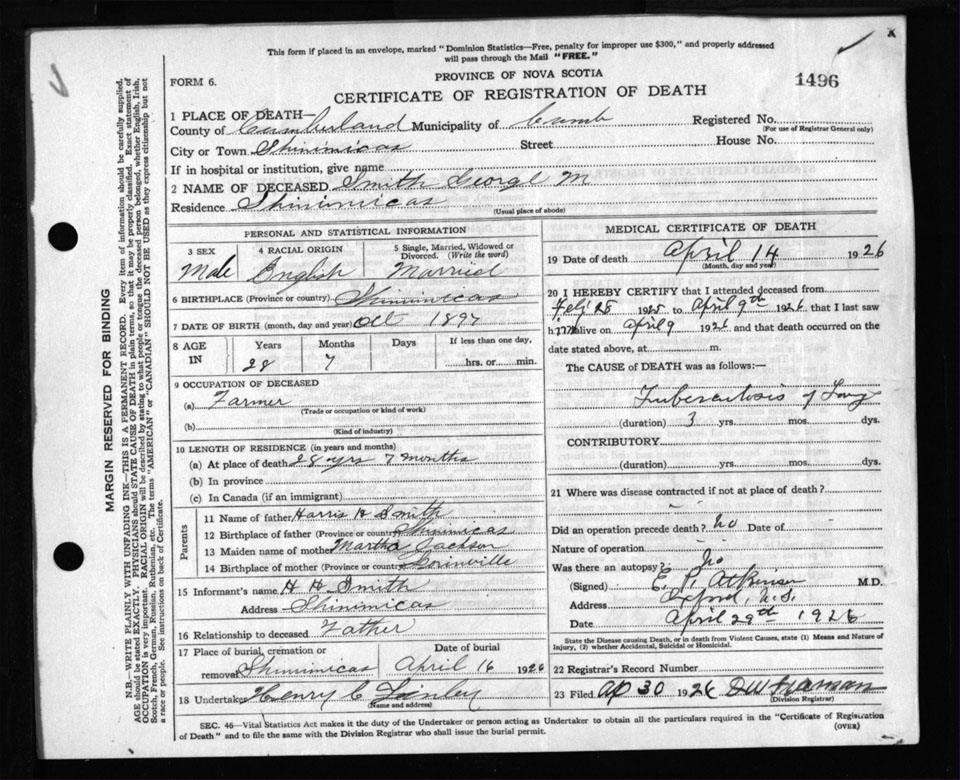 This form if placed in an envelope, marked "Dominion Statistics—Free, penalty for improper use $300," and properly addressed
will pass through the Mail "FREE."
FORM 6.
PROVINCE OF NOVA SCOTIA
1496
CERTIFICATE OF REGISTRATION OF DEATH
1 PLACE OF DEATH—
County of Cumberland Municipality of Cumb Registered No.
(For use of Registrar General only)
City or Town Shinimicas Street House No.
If in hospital or institution, give name
2 NAME OF DECEASED Smith George M
Residence Shinimicas
(Usual place of abode)
PERSONAL AND STATISTICAL INFORMATION
3 SEX 4 RACIAL ORIGIN 5 Single, Married, Widowed or
Divorced. (Write the word)
Male English Married
6 BIRTHPLACE (Province or country) Shinimicas
7 DATE OF BIRTH (month, day and year) Oct 1897
8 AGE IN Years Months Days If less than one day,
28 7 hrs. or min.
9 OCCUPATION OF DECEASED
(a) Farmer
(Trade or occupation or kind of work)
(b)
(Kind of industry)
10 LENGTH OF RESIDENCE (in years and months)
(a) At place of death 28 yrs 7 months
(b) In province
(c) In Canada (if an immigrant)
Parents
11 Name of father Harris H Smith
12 Birthplace of father (Province or country) Shinimicas
13 Maiden name of mother Martha Jackson
14 Birthplace of mother (Province or country)
15 Informant's name H H Smith
Address Shinimicas
16 Relationship to deceased Father
17 Place of burial, cremation or Date of burial
removal Shinimicas April 16 1926
18 Undertaker Henry C
(Name and address)
MEDICAL CERTIFICATE OF DEATH
19 Date of death April 14 1926
(Month, day and year)
20 I HEREBY CERTIFY that I attended deceased from
Feb 28 1925 to April 9th 1926 that I last saw
him alive on April 9 1926 and that death occurred on the
date stated above, at m.
The CAUSE of DEATH was as follows:—
Tuberculosis of Lung
(duration) 3 yrs. mos. dys.
CONTRIBUTORY
(duration) yrs. mos. dys.
21 Where was disease contracted if not at place of death?
Did an operation precede death? no Date of
Nature of operation
Was there an autopsy? no
(Signed) E. P. Atkinson M.D.
Address Oxford, N.S.
Date April 29th 1926
State the Disease causing Death, or in death from Violent Causes, state (1) Means and Nature of
Injury, (2) whether Accidental, Suicidal or Homicidal.
22 Registrar's Record Number
23 Filed Ap 30 1926 DW
(Division Registrar)
SEC. 46—Vital Statistics Act makes it the duty of the Undertaker or person acting as Undertaker to obtain all the particulars required in the "Certificate of Registration
of Death" and to file the same with the Division Registrar who shall issue the burial permit.
(OVER)
MARGIN RESERVED FOR BINDING
N.B.—WRITE PLAINLY WITH UNFADING INK—THIS IS A PERMANENT RECORD. Every item of information should be carefully supplied.
AGE should be stated EXACTLY. PHYSICIANS should STATE CAUSE OF DEATH in plain terms, so that it may be properly classified. Exact statement of
OCCUPATION is very important. RACIAL ORIGIN will be described by stating to what people or tongue the deceased person belonged, whether English, Irish,
Scotch, French, German, Russian, Ruthenian, etc. The terms "AMERICAN" or "CANADIAN" SHOULD NOT BE USED as they express citizenship but not
a race or people. See instructions on back of Certificate.